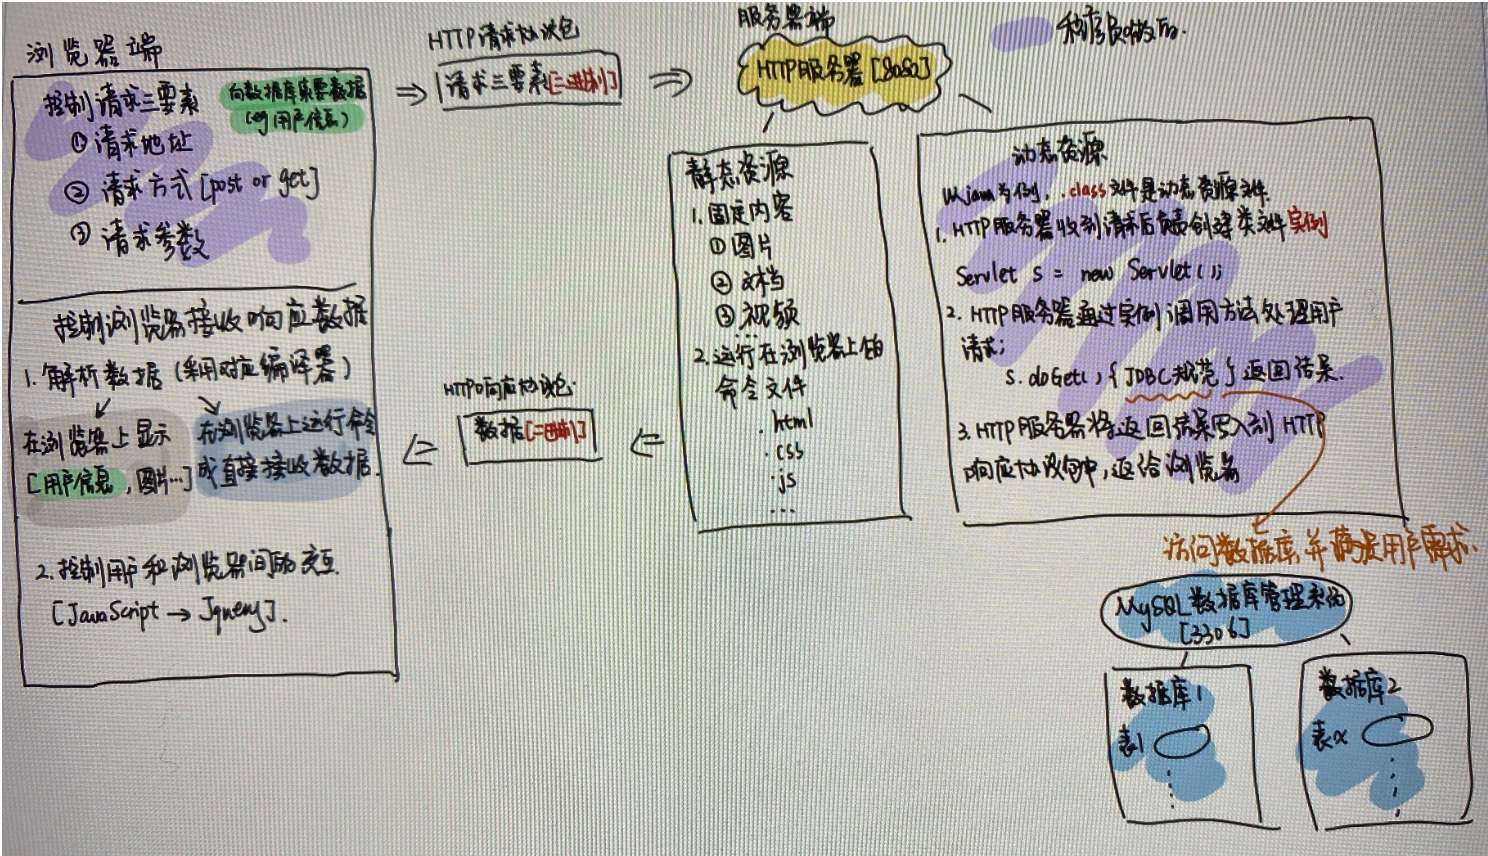 浏览器端
控制请求三要素
向数据库索要数据
(eg用户信息)
① 请求地址
② 请求方式[post or get]
③ 请求参数
控制浏览器接收响应数据
1. 解析数据(采用对应编译器)
在浏览器上显示
[用户信息,图片…]
在浏览器上运行命令
或直接接收数据.
2. 控制用户和浏览器间的交互.
[JavaScript → Jquery].
HTTP请求协议包
请求三要素[二进制]
HTTP响应协议包.
数据[二进制]
服务器端
HTTP服务器[8080]
程序员做的.
静态资源
1. 固定内容
① 图片
② 文档
③ 视频
…
2. 运行在浏览器上的
命令文件
. html
. css
. js
…
动态资源
以java为例, .class文件是动态资源文件.
1. HTTP服务器收到请求后负责创建类文件实例
Servlet s = new Servlet();
2. HTTP服务器通过实例调用方法处理用户
请求;
s.doGet(); { JDBC规范 } 返回结果.
3. HTTP服务器将返回结果写入到 HTTP
响应协议包中,返给浏览器
访问数据库,并满足用户需求.
MySQL数据库管理系统
[3306]
数据库1
表1
数据库2
表x